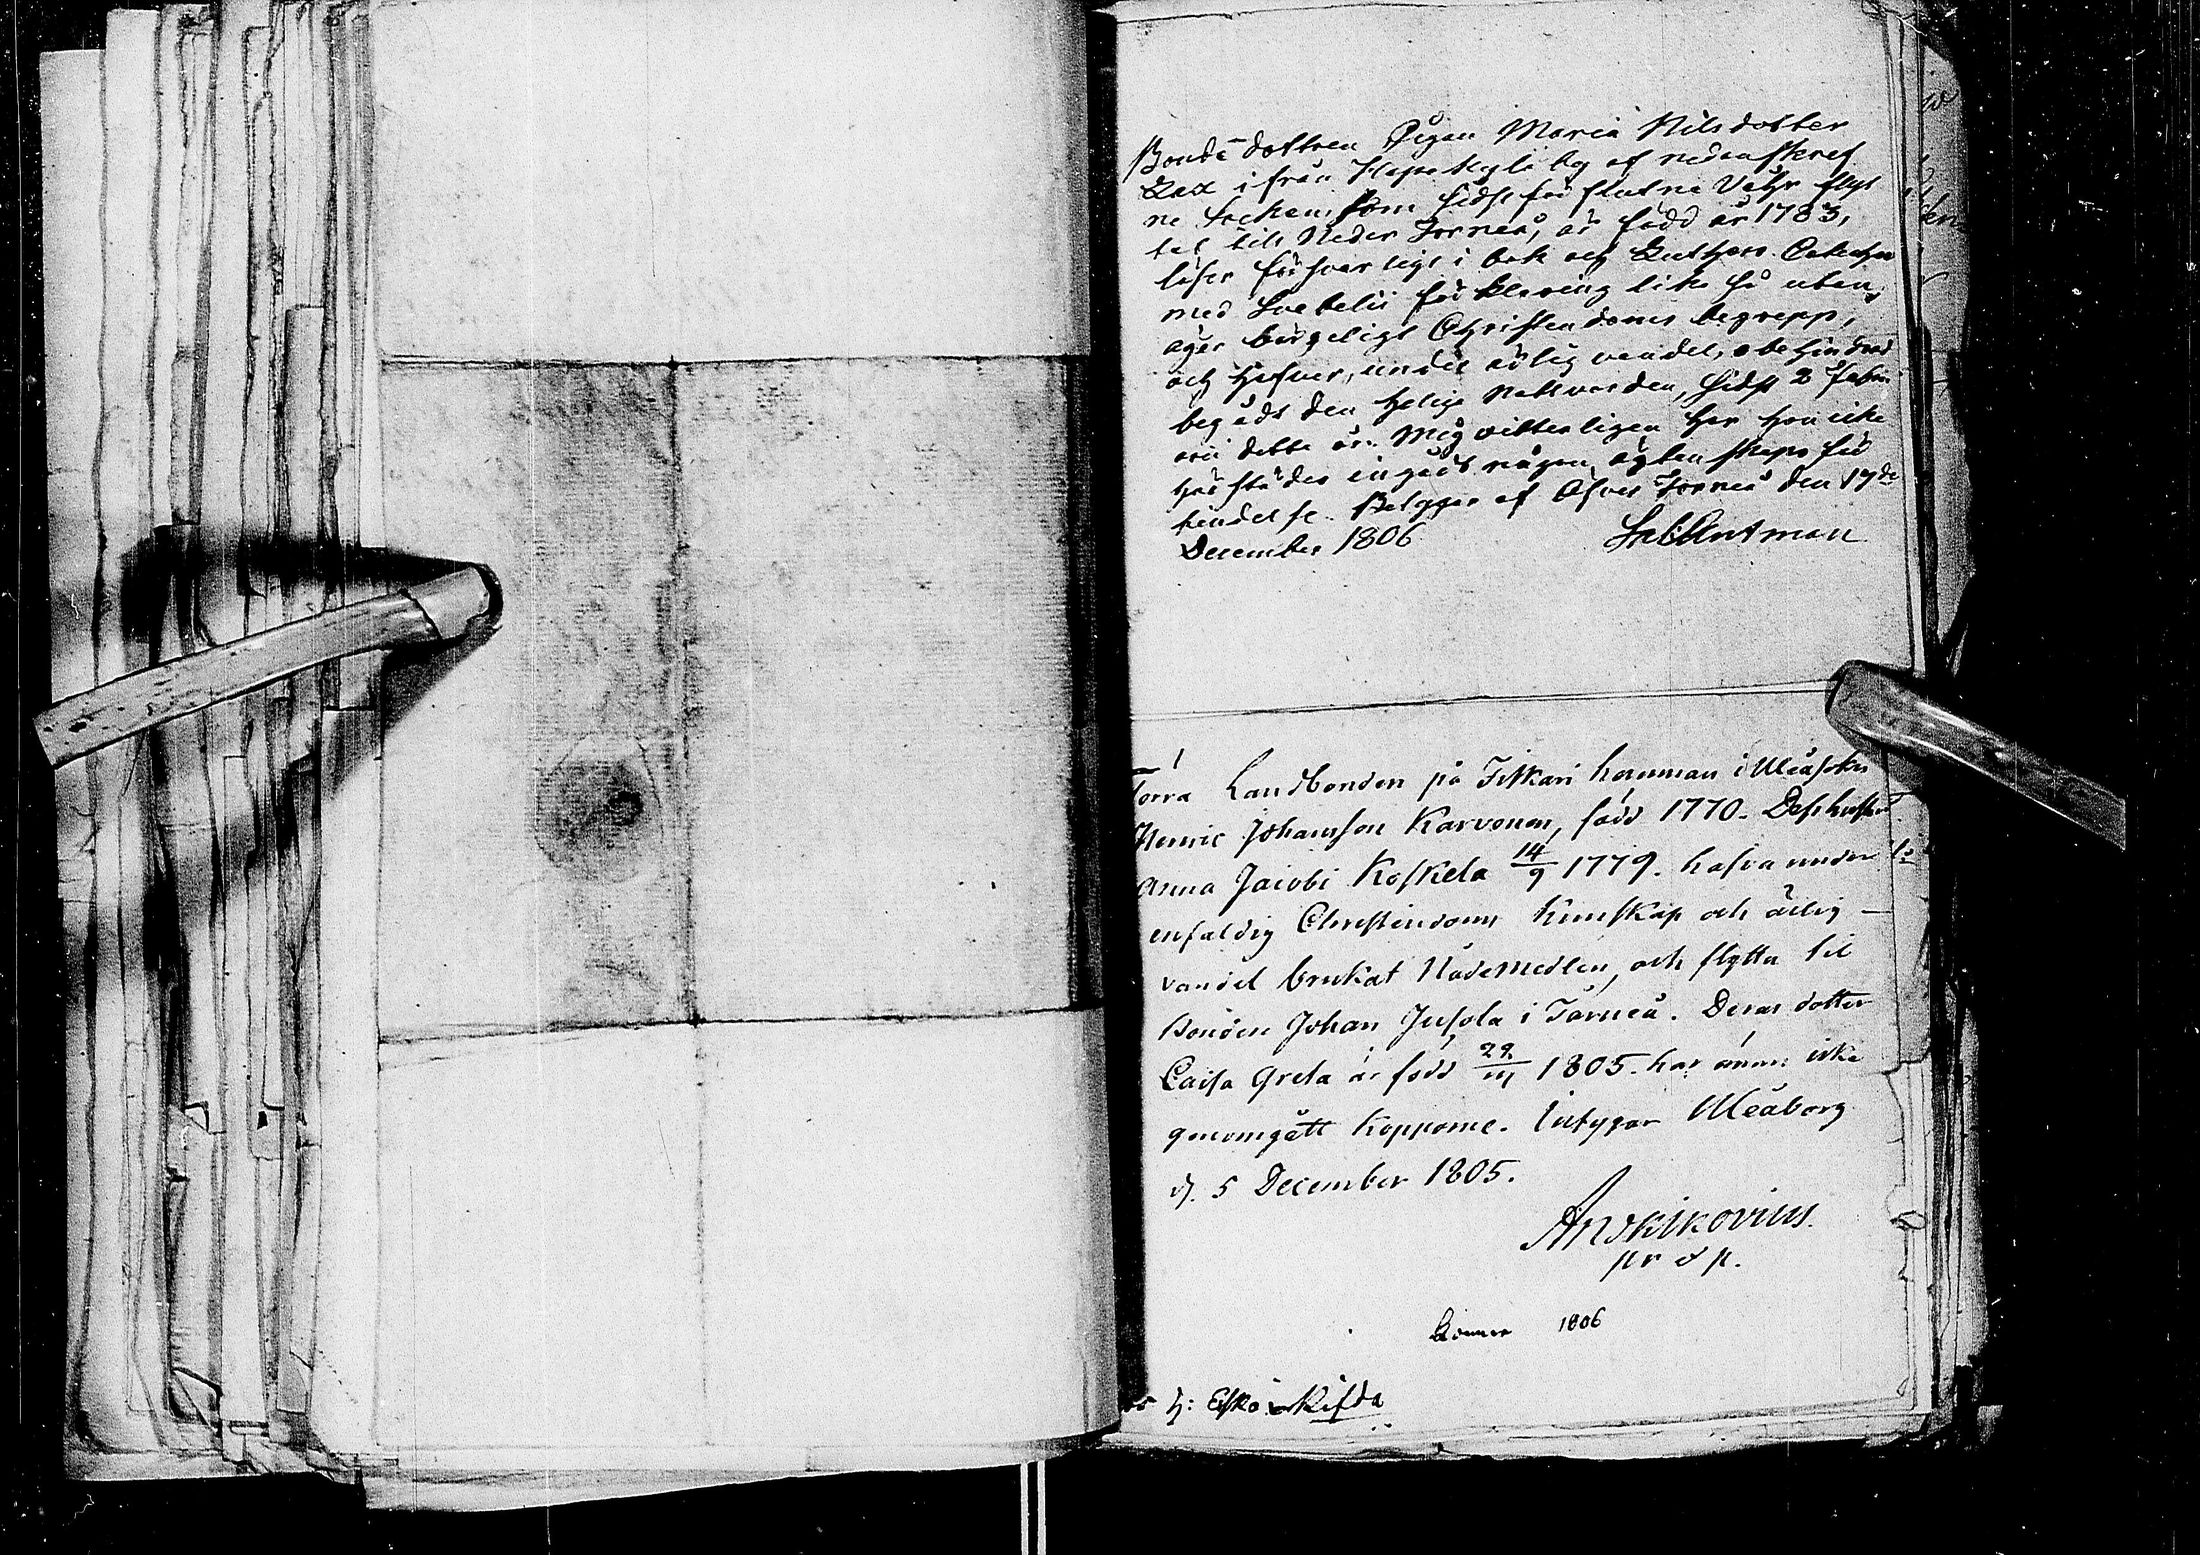 Bondedottren Pigan Maria Nilsdotter
Lax ifrån Haapakylä by af nedanskref
ne Socken, som sidst förflutne Vår flyt
tat till Neder Torneå, är född år 1783,
läser försvarligt i bok och Luthers Cateches
med Svebelii förklaring lika så utan,
äger börgeligt Christendoms begrepp,
och hafver, under ärlig vandel, obehindrad
begådt den Helige Nattvarden, sidst 2 Febru
arii detta år. Mig vitterligen har hon icke
härstädes ingådt någon ägtenskaps för
bindelse. Betygar af Öfver Torneå den 17de
December 1806
Förra Landbonden på Hemman i Uleå Sokn
Henric Johansson Karvonen, född 1770. Dess hustru
Anna Jacobi Koskela 14/9 1779. hafva under
enfaldig Christendoms Kunskap och ärlig
vandel brukat Nådemedlen, och flytta til
Bonden Johan Jusola i Torneå. Deras dotter
Caisa Greta är född 29/ 1805. har ännu icke
genomgått Kopporne. Intygar Uleåborg
d. 5 December 1805.
And Kikovius
1806